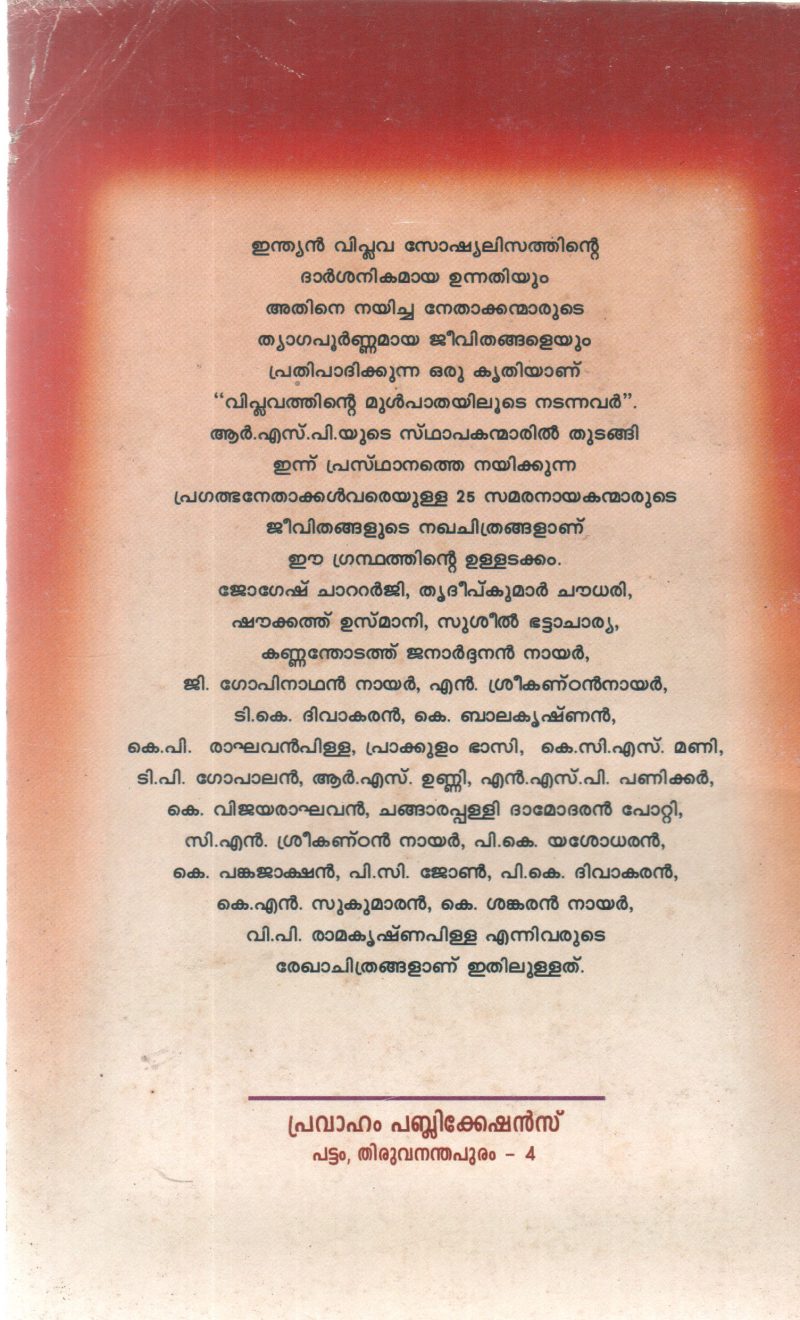 ഇന്ത്യൻ വിപ്ലവ സോഷ്യലിസത്തിന്റെ
ദാർശനികമായ ഉന്നതിയും
അതിനെ നയിച്ച നേതാക്കന്മാരുടെ
ത്യാഗപൂർണ്ണമായ ജീവിതങ്ങളെയും
പ്രതിപാദിക്കുന്ന ഒരു കൃതിയാണ്
“വിപ്ലവത്തിന്റെ മുൾപാതയിലൂടെ നടന്നവർ”.
ആർ.എസ്.പി.യുടെ സ്ഥാപകന്മാരിൽ തുടങ്ങി
ഇന്ന് പ്രസ്ഥാനത്തെ നയിക്കുന്ന
പ്രഗത്ഭനേതാക്കൾവരെയുള്ള 25 സമരനായകന്മാരുടെ
ജീവിതങ്ങളുടെ നഖചിത്രങ്ങളാണ്
ഈ ഗ്രന്ഥത്തിന്റെ ഉള്ളടക്കം.
ജോഗേഷ് ചാററർജി, തൃദീപ്കുമാർ ചൗധരി,
ഷൗക്കത്ത് ഉസ്മാനി, സുശീൽ ഭട്ടാചാര്യ,
കണ്ണന്തോടത്ത് ജനാർദ്ദനൻ നായർ,
ജി. ഗോപിനാഥൻ നായർ, എൻ. ശ്രീകണ്ഠൻനായർ,
ടി.കെ. ദിവാകരൻ, കെ. ബാലകൃഷ്ണൻ,
കെ.പി. രാഘവൻപിള്ള, പ്രാക്കുളം ഭാസി, കെ.സി.എസ്. മണി,
ടി.പി. ഗോപാലൻ, ആർ.എസ്. ഉണ്ണി, എൻ.എസ്.പി. പണിക്കർ,
കെ. വിജയരാഘവൻ, ചങ്ങാരപ്പള്ളി ദാമോദരൻ പോറ്റി,
സി.എൻ. ശ്രീകണ്ഠൻ നായർ, പി.കെ. യശോധരൻ,
കെ. പങ്കജാക്ഷൻ, പി.സി. ജോൺ, പി.കെ. ദിവാകരൻ,
കെ.എൻ. സുകുമാരൻ, കെ. ശങ്കരൻ നായർ,
വി.പി. രാമകൃഷ്ണപിള്ള എന്നിവരുടെ
രേഖാചിത്രങ്ങളാണ് ഇതിലുള്ളത്.
പ്രവാഹം പബ്ലിക്കേഷൻസ്
പട്ടം, തിരുവനന്തപുരം – 4